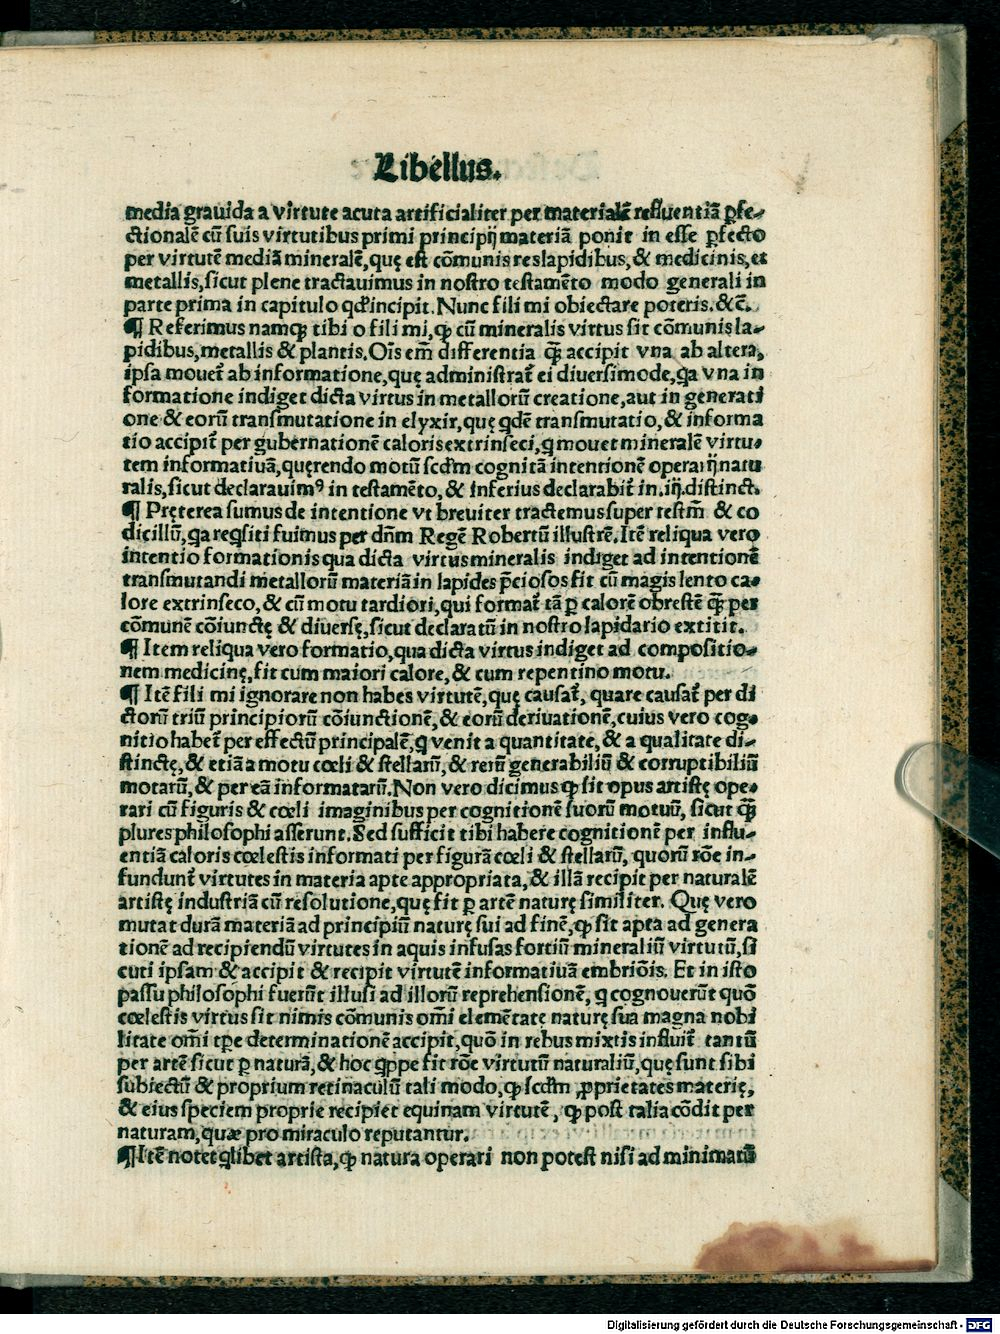 Libellus.
media grauida a virtute acuta artificialiter per materialē refluentiā ꝑfe-
ctionalē cū suis virtutibus primi principij materiā ponit in esse ꝑfecto
per virtutē mediā mineralē, quę est cōmunis res lapidibus, & medicinis, et
metallis, sicut plene tractauimus in nostro testamēto modo generali in
parte prima in capitulo qd̄ incipit. Nunc fili mi obiectare poteris. &c̄.
¶ Referimus namqꝫ tibi o fili mi, ꝙ cū mineralis virtus sit cōmunis la-
pidibus, metallis & plantis. Oīs em̄ differentia quā accipit vna ab altera,
ipsa mouet̄ ab informatione, quę administrat̄ ei diuersimode, q̄a vna in
formatione indiget dicta virtus in metallorū creatione, aut in generati
one & eorū transmutatione in elyxir, quę qdē transmutatio, & informa
tio accipit̄ per gubernationē caloris extrinseci, q mouet minerale virtu-
tem informatiuā, quęrendo motū scdm̄ cognitā intentionē operarij natu
ralis, sicut declarauimꝰ in testamēto, & inferius declarabit̄ in. iij. distinct.
¶ Pręterea sumus de intentione vt breuiter tractemus super testm̄ & co
dicillū, q̄a reqsiti fuimus per dn̄m Regē Robertū illustrē. Itē reliqua vero
intentio formationis qua dicta virtus mineralis indiget ad intentionē
transmutandi metallorū materiā in lapides p̄ciosos fit cū magis lento ca-
lore extrinseco, & cū motu tardiori, qui format̄ tā ꝑ calorē obrestē quā per
cōmunē cōiunctę & diuersę, sicut declaratū in nostro lapidario extitit.
¶ Item reliqua vero formatio, qua dicta virtus indiget ad compositio-
nem medicinę, fit cum maiori calore, & cum repentino motu.
¶ Itē fili mi ignorare non habes virtutē, quę causat̄, quare causat̄ per di
ctorū triū principiorū cōiunctionē, & eorū deriuationē, cuius vero cog-
nitio habet̄ per effectū principalē, q venit a quantitate, & a qualitate di-
stinctę, & etiā a motu cœli & stellarū, & rerū generabiliū & corruptibiliū
motarū, & per eā informatarū. Non vero dicimus ꝙ sit opus artistę ope-
rari cū figuris & cœli imaginibus per cognitionē suorū motuū, sicut quā
plures philosophi asserunt. Sed sufficit tibi habere cognitionē per influ-
entiā caloris cœlestis informati per figurā cœli & stellarū, quorū rōe in-
fundunt̄ virtutes in materia apte appropriata, & illā recipit per naturalē
artistę industriā cū resolutione, quę fit ꝑ artē naturę similiter. Quę vero
mutat durā materiā ad principiū naturę sui ad finē, ꝙ sit apta ad genera
tionē ad recipiendū virtutes in aquis infusas fortiū mineraliū virtutū, si
cuti ipsam & accipit & recipit virtutē informatiuā embriōis. Et in isto
passu philosophi fuerūt illusi ad illorū reprehensionē, q cognouerūt quō
cœlestis virtus sit nimis cōmunis om̄i elemētatę naturę sua magna nobi
litate om̄i tp̄e determinationē accipit, quō in rebus mixtis influit̄ tantū
per artē sicut ꝑ naturā, & hoc qppe fit rōe virtutū naturaliū, quę sunt sibi
subiectū & proprium retinaculū tali modo, ꝙ scdm̄ ꝓprietates materię,
& eius speciem proprie recipiet equinam virtutē, ꝙ post talia cōdit per
naturam, quæ pro miraculo reputantur.
¶ Itē notet qlibet artista, ꝙ natura operari non potest nisi ad minimatū
Digitalisierung gefördert durch die Deutsche Forschungsgemeinschaft - DFG